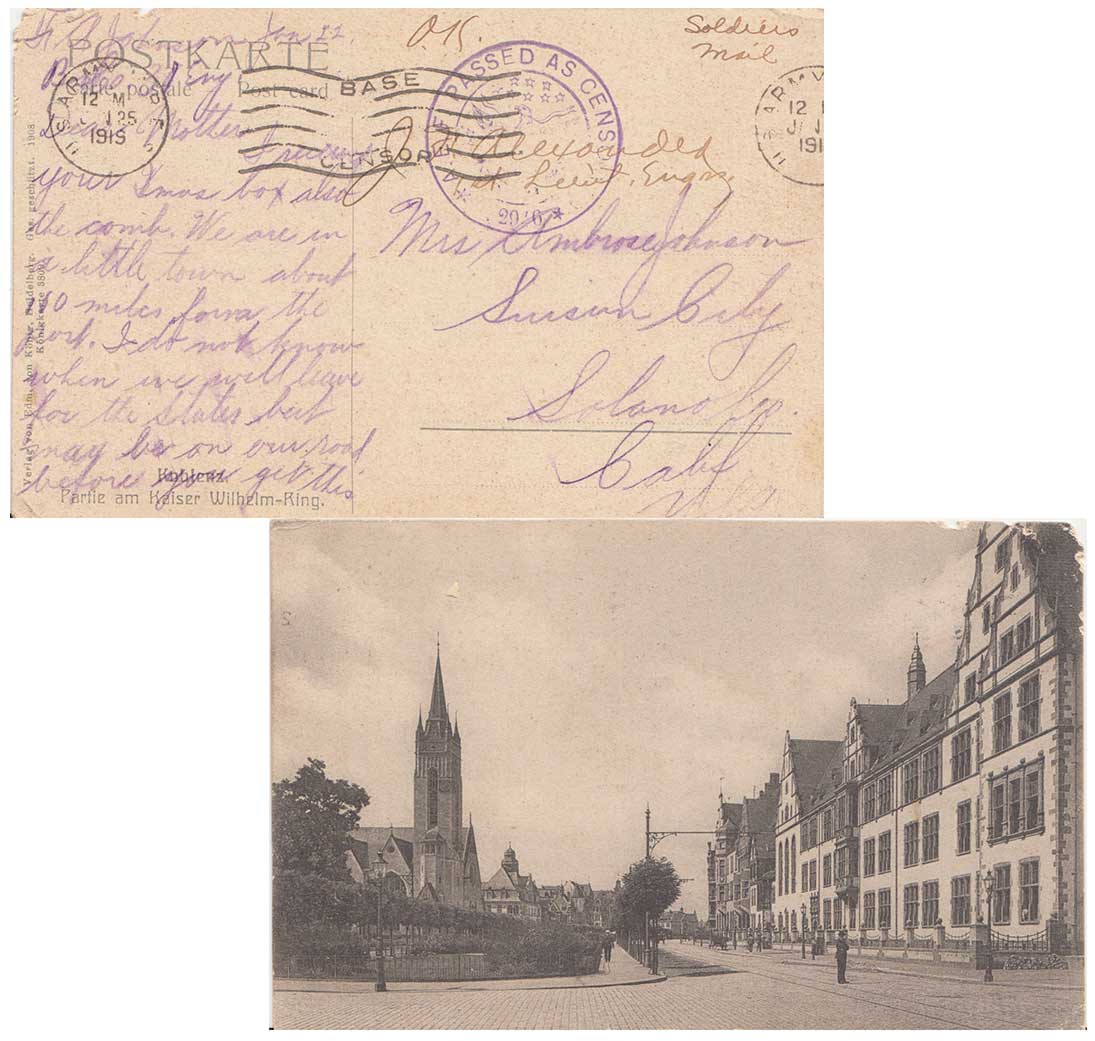 Jan 22
POSTKARTE
Carte postale Post card
Dear Mother
I received
your Xmas box also
the comb. We are in
a little town about
miles form the
port. I do not know
when we will leave
for the States but
may be on our road
before you get this
Koblenz.
Partie am Kaiser Wilhelm-Ring.
Verlag von Edm. von König, Heidelberg. Ges. geschützt. 1908
Königkarte
O.K.
Soldiers
Mail
12 M
1919
BASE
CENSOR
A.E.F. PASSED AS CENSORED
Alexander
1st Lieut. Engrs.
Mrs Ambrose Johnson
Suisun City
Solano Co.
Calif
12
191